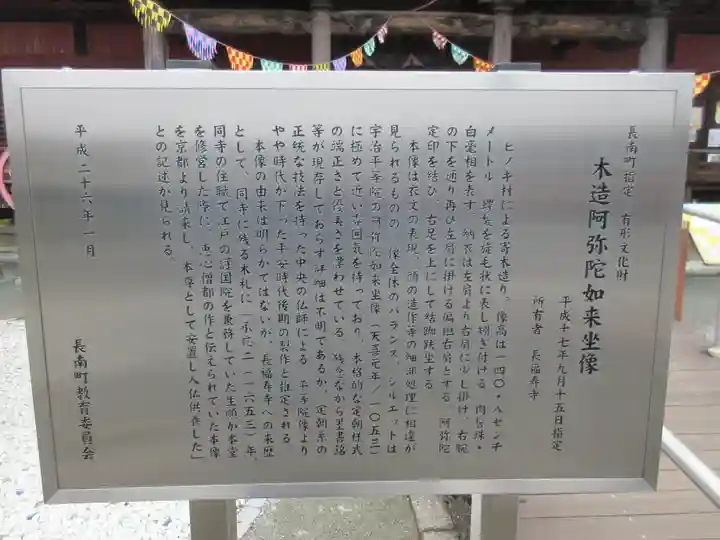 長南町指定 有形文化財
木造阿弥陀如来坐像
平成十七年九月十五日指定
所有者 長福寿寺
ヒノキ材による寄木造り。像高は一四〇・八センチ
メートル 螺髪を旋毛状に表し彫き付ける 肉髻珠・
白毫相を表す 納衣は左肩より右肩に少し掛け、右腕
の下を通り再び左肩に掛ける偏袒右肩とする 阿弥陀
定印を結び、右足を上にして結跏趺坐する
本像は衣文の表現、頭の造作等の細部処理に相違が
見られるものの 像全体のバランス、シルエットは
宇治平等院の阿弥陀如来坐像(天喜元年/一〇五三)
に極めて近い雰囲気を持っており、本格的な定朝様式
の端正さと優美さを漂わせている 残念ながら墨書銘
等が現存しておらず詳細は不明であるが、定朝系の
正統な技法を持った中央の仏師による 平等院像より
やや時代が下った平安時代後期の製作と推定される
本像の由来は明らかではないが、長福寿寺への来歴
として、同寺に残る木札に「承応二(一六五三)年、
同寺の住職で江戸の護国院を兼務していた生順が本堂
を修営した際に、恵心僧都の作と伝えられていた本像
を京都より請来し、本尊として安置し入仏供養した」
との記述が見られる。
平成二十六年一月
長南町教育委員会